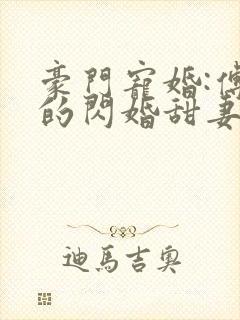 豪門寵婚:傅
的閃婚甜妻
迪馬吉奧